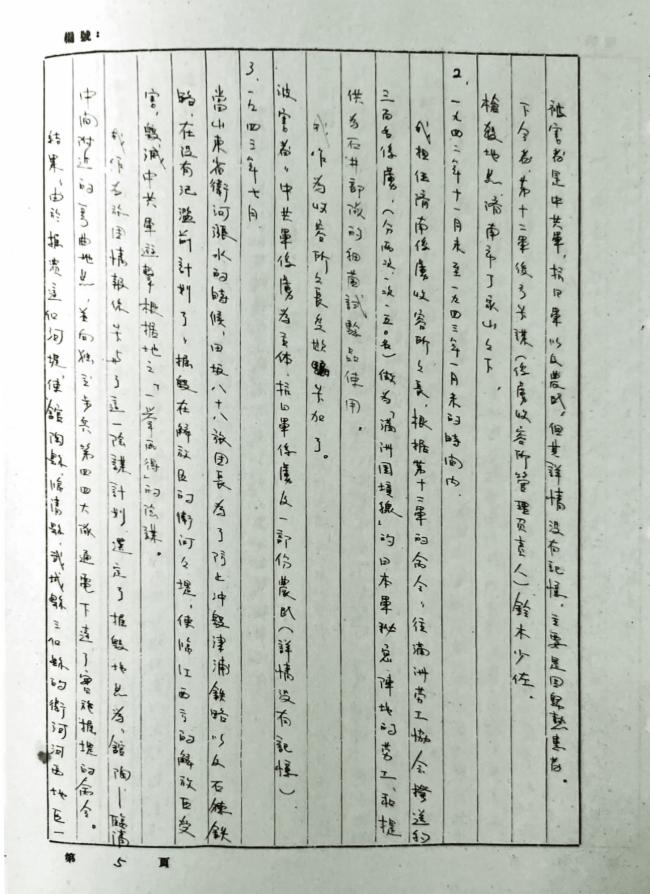 編號：
被害者是中共軍，抗日軍以及農民。但其詳情沒有記憶，主要是因
下令者 第十二軍後方參謀（俘虜收容所管理負責人）鈴木少佐。
檢殺地点 濟南市了永山之下。
2. 一九四二年十一月末至一九四三年一月末的時间内。
我担任濟南俘虜收容所之長，根据第十二軍的命令，往滿洲劳工協会撥送約
三百名俘虜，（分兩次一次一五〇名）做为「滿洲国境線」的日本軍秘密陣地的劳工，和提
供为石井部隊的細菌試驗品使用。
我作为收容所之長 参加了。
被害者，中共軍俘虜为主体，抗日軍俘虜及一部份農民（詳情没有記憶）
3. 一九四三年七月
當山東省衛河漲水的時候，田坂八十八旅团長 为了防止冲毀津浦鉄路以及石德鉄
路，在没有氾濫前計划了，掘毀在解放区的衛河之堤，使臨江西方的解放区受
害，毀滅中共軍 根据地之「一举兩得」的陰謀。
我作为旅团情報 参与了這一陰謀計划 選定了掘毀地点为，館陶—臨清
中间附近的彎曲地点，並向独立步兵第四四大隊 通電下達了實施掘堤的命令。
結果，由於掘毀這個河堤，使館陶縣，臨清縣，武城縣三個縣的衛河河西地区一
第 5 頁